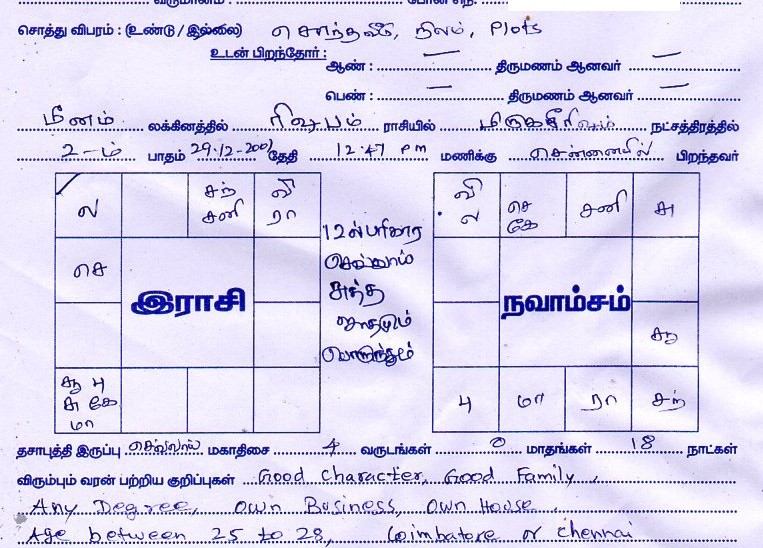 வருமானம் : போன் எண் :
சொத்து விபரம் : (உண்டு / இல்லை) சொந்தவீடு, நிலம், Plots
உடன் பிறந்தோர் :
ஆண் : — திருமணம் ஆனவர் —
பெண் : — திருமணம் ஆனவர் —
மீனம் லக்கினத்தில் ரிஷபம் ராசியில் மிருகசீரிஷம் நட்சத்திரத்தில்
2-ம் பாதம் 29.12.2001 தேதி 12.47 pm மணிக்கு சென்னையில் பிறந்தவர்
ல சந் சனி வி ரா
செ
இராசி
சூ பு
சு கே
மா
12ல் பரிகார
செவ்வாய்
சுத்த
ஜாதகமும்
பொருந்தும்
வி ல செ கே சனி சு
நவாம்சம்
சூ
பு மா ரா சந்
தசாபுத்தி இருப்பு செவ்வாய் மகாதிசை 4 வருடங்கள் 0 மாதங்கள் 18 நாட்கள்
விரும்பும் வரன் பற்றிய குறிப்புகள் Good Character, Good Family,
Any Degree, Own Business, Own House.
Age between 25 to 28, Coimbatore or Chennai